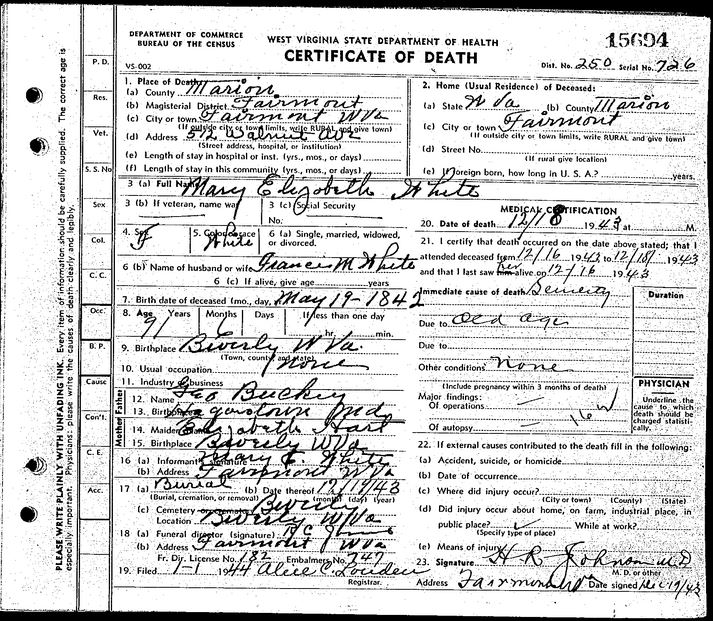 DEPARTMENT OF COMMERCE
BUREAU OF THE CENSUS
WEST VIRGINIA STATE DEPARTMENT OF HEALTH
CERTIFICATE OF DEATH
15694
VS-002
Dist. No. 250 Serial No. 726
PLEASE WRITE PLAINLY WITH UNFADING INK. Every item of information should be carefully supplied. The correct age is
especially important. Physicians: please write the causes of death clearly and legibly.
P. D.
Res.
Vet.
S. S. No
Sex
Col.
C. C.
Occ.
B. P.
Cause
Con't.
C. E.
Acc.
1. Place of Death
(a) County Marion
(b) Magisterial District Fairmont
(c) City or town Fairmont W Va
(If outside city or town limits, write RURAL and give town)
(d) Address 512 Walnut Ave
(Street address, hospital, or institution)
(e) Length of stay in hospital or inst. (yrs., mos., or days)
(f) Length of stay in this community (yrs., mos., or days)
2. Home (Usual Residence) of Deceased:
(a) State W Va (b) County Marion
(c) City or town Fairmont
(If outside city or town limits, write RURAL and give town)
(d) Street No.
(If rural give location)
(e) If foreign born, how long in U. S. A.? years.
3 (a) Full Name Mary Elizabeth White
3 (b) If veteran, name war
3 (c) Social Security
No:
4. Sex F
5. Color or race White
6 (a) Single, married, widowed,
or divorced.
6 (b) Name of husband or wife Francis M White
6 (c) If alive, give age years
7. Birth date of deceased (mo., day, May 19-1842
8. Age 91 Years Months 6 Days If less than one day
hr. min.
9. Birthplace Beverly W Va
(Town, county and state)
10. Usual occupation none
11. Industry or business
Mother Father
12. Name Geo Buckey
13. Birthplace Md
14. Maiden Name Elizabeth Hart
15. Birthplace Beverly W Va
16 (a) Informant's signature Mary E. White
(b) Address Fairmont W Va
17 (a) Burial (b) Date thereof 12/19/43
(Burial, cremation, or removal) (month) (day) (year)
(c) Cemetery or crematory Beverly
Location Beverly W Va
18 (a) Funeral director (signature) R C
(b) Address Fairmont W Va
Fr. Dir. License No. 182 Embalmers No. 747
19. Filed 1-1 1944 Alice C. Louden
Registrar.
MEDICAL CERTIFICATION
20. Date of death 12/18 1943 at M.
21. I certify that death occurred on the date above stated; that I
attended deceased from 12/16 1943 to 12/18/ 1943
and that I last saw her alive on 12/16 1943
Immediate cause of death Senility
Duration
Due to Old age
Due to
Other conditions None
(Include pregnancy within 3 months of death)
Major findings:
Of operations
Of autopsy
162
PHYSICIAN
Underline the
cause to which
death should be
charged statisti-
cally.
22. If external causes contributed to the death fill in the following:
(a) Accident, suicide, or homicide
(b) Date of occurrence
(c) Where did injury occur?
(City or town) (County) (State)
(d) Did injury occur about home, on farm, industrial place, in
public place? While at work?
(Specify type of place)
(e) Means of injury
23. Signature H R Johnson M D
M. D. or other
Address Fairmont W Va Date signed Dec 19/43